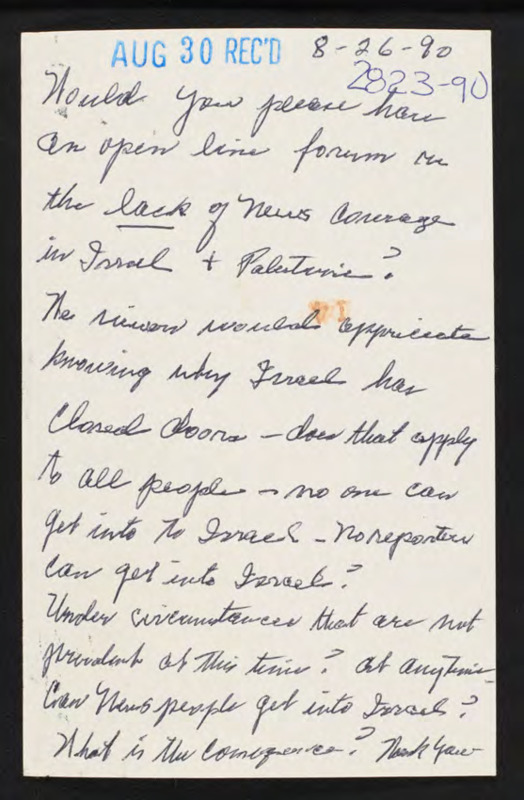 AUG 30 REC'D 8-26-90
2823-90
Would you please have
an open line forum on
the lack of News Coverage
in Israel + Palestine?
The viewers would appriciate
knowing why Israel has
Closed doors - does that apply
to all people - no one can
get into to Israel - No reporters
can get into Israel?
Under circumstances that are not
prevalent at this time? at anytime
Can News people get into Israel?
What is the Consequence? Thank You